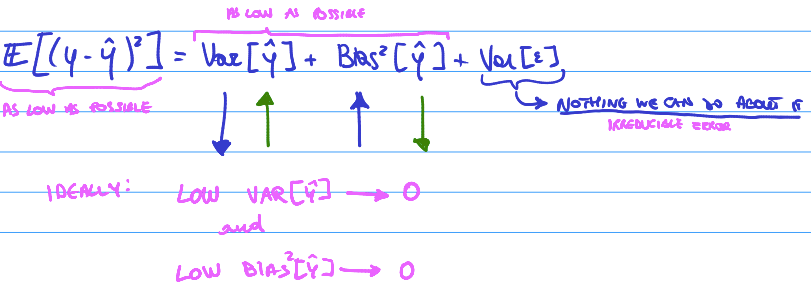 AS LOW AS POSSIBLE
E[(y-ŷ)²] = Var[ŷ] + Bias²[ŷ] + Var[ε]
AS LOW AS POSSIBLE
NOTHING WE CAN DO ABOUT IT
IRREDUCIBLE ERROR
IDEALLY: LOW VAR[ŷ] → 0
and
LOW BIAS²[ŷ] → 0